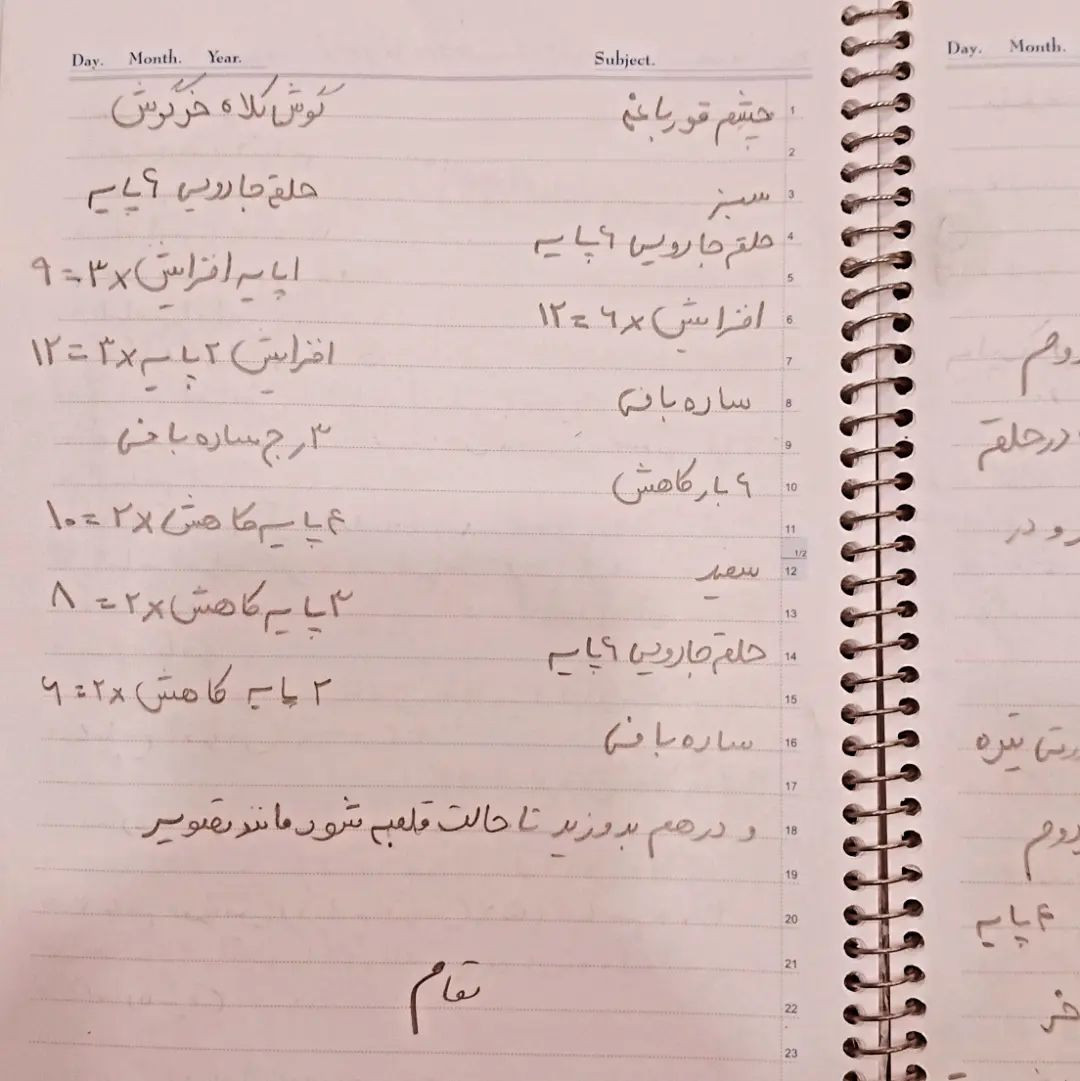 Day. Month. Year. Subject.
چشم قورباغه
سبز
حلقه جادویی ۶ پایه
افزایش x ۶ = ۱۲
ساده بافی
۶ بار کاهش
سفید
حلقه جادویی ۶ پایه
ساده بافی
گوش کلاه خرگوش
حلقه جادویی ۶ پایه
۱ پایه افزایش x ۳ = ۹
افزایش ۲ پایه x ۳ = ۱۲
۳ رج ساده بافی
۴ پایه کاهش x ۲ = ۱۰
۳ پایه کاهش x ۲ = ۸
۲ پایه کاهش x ۲ = ۶
و در هم بدوزید تا حالت قلمبه شود مانند تصویر
تمام
1
2
3
4
5
6
7
8
9
10
11
1/2
12
13
14
15
16
17
18
19
20
21
22
23
Day. Month.
در حلقه
و در
۴ پایه